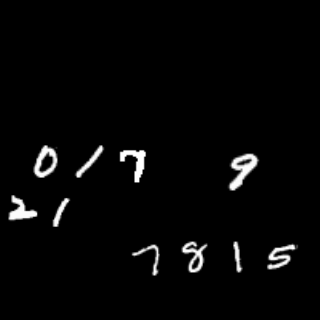 0 1 7 9
2 1
7 8 1 5